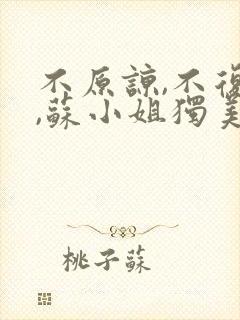 不原諒,不復
,蘇小姐獨美
桃子蘇